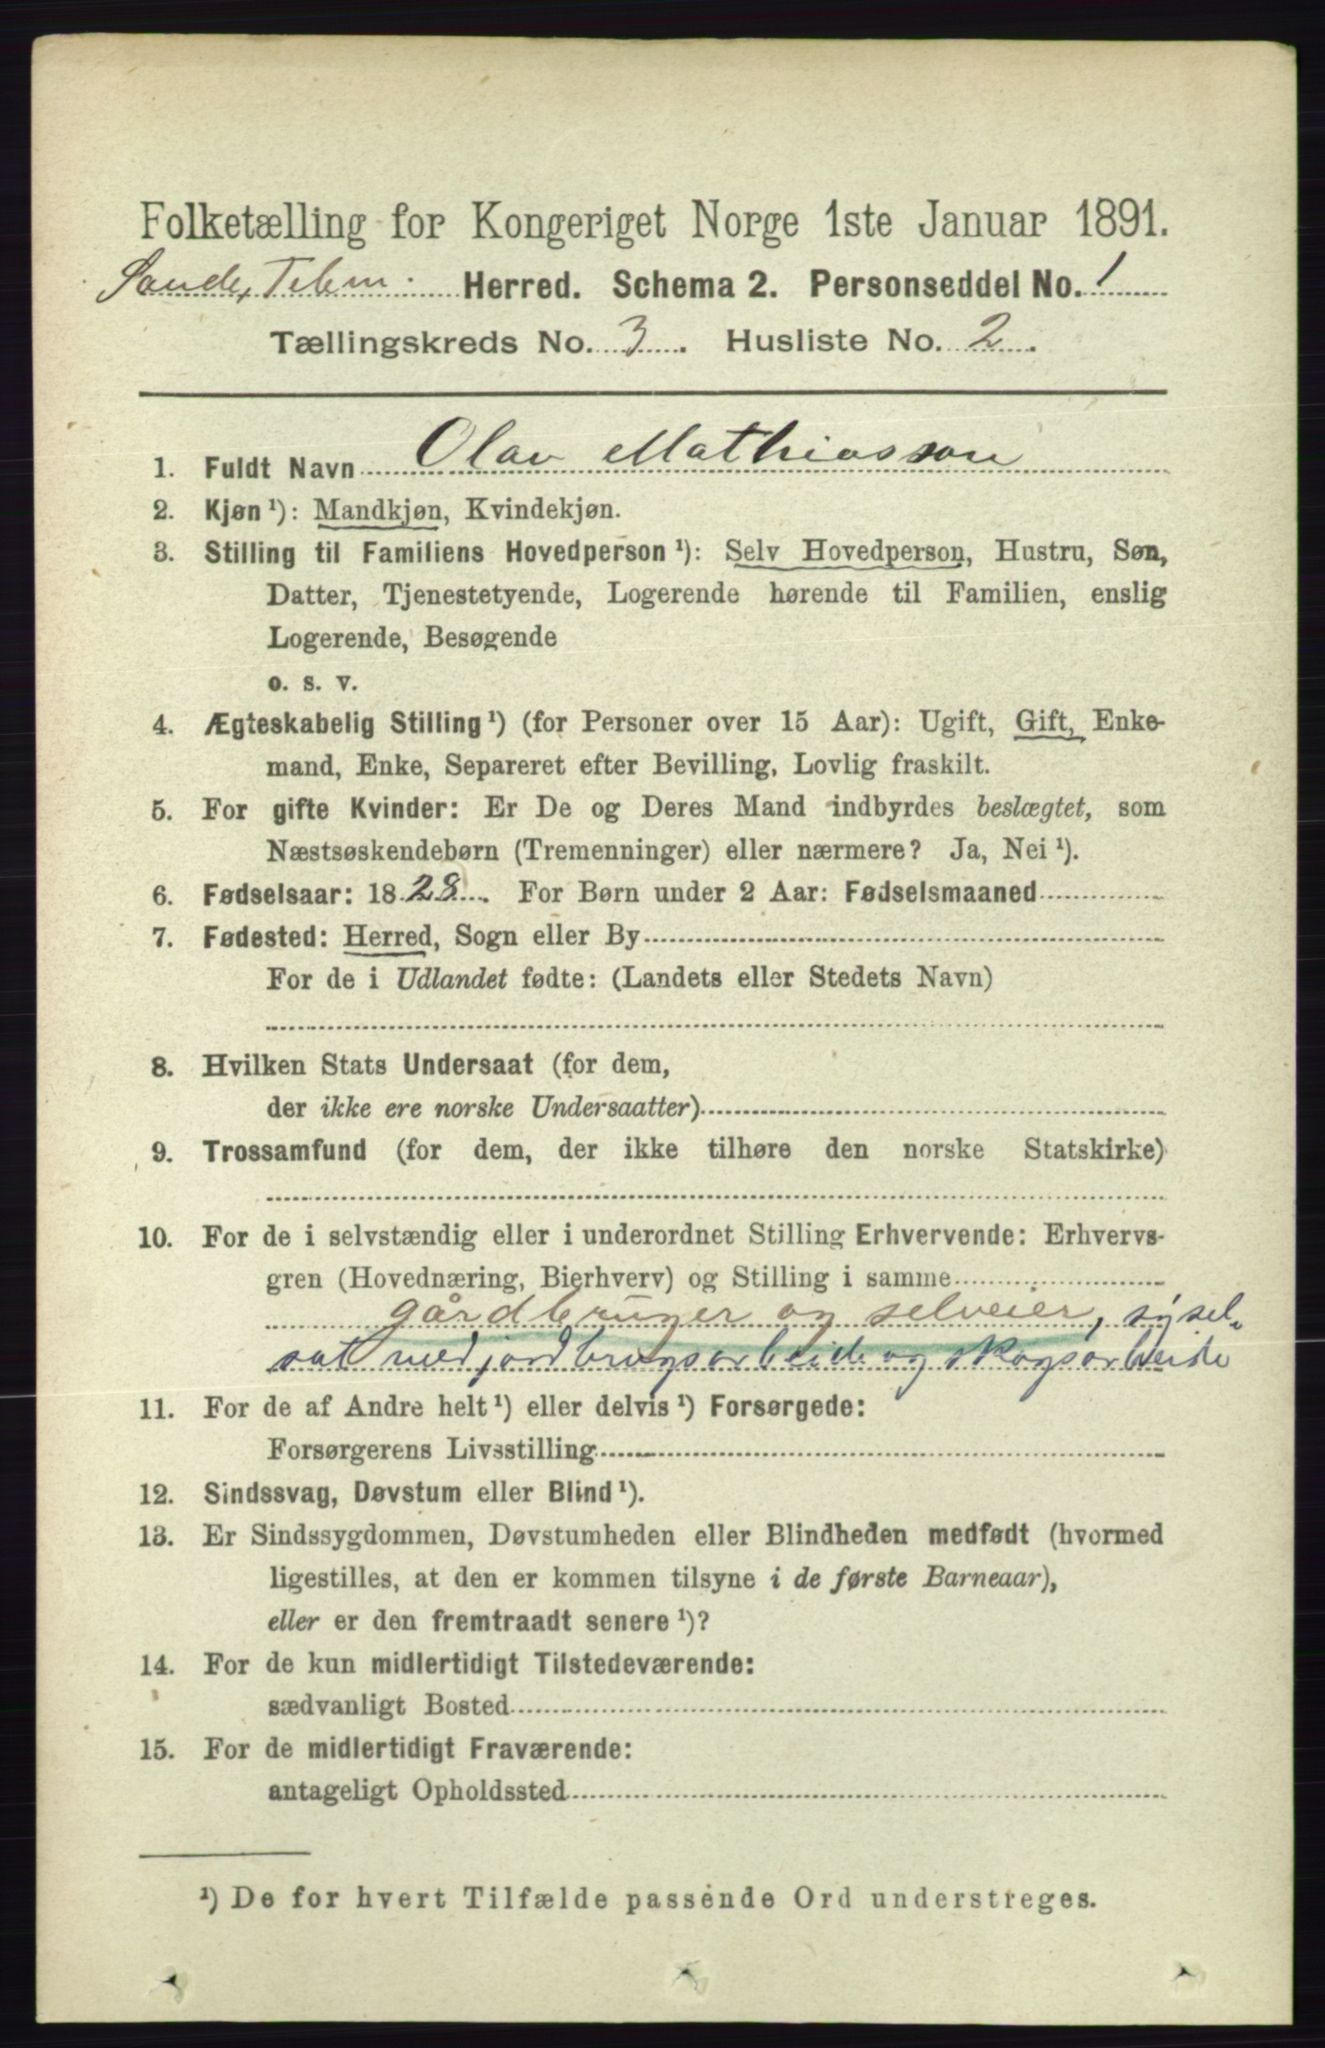 Folketælling for Kongeriget Norge 1ste Januar 1891.
Saude, Telem. Herred. Schema 2. Personseddel No. 1
Tællingskreds No. 3. Husliste No. 2.
1. Fuldt Navn Olav Mathiasson
2. Kjøn ¹): Mandkjøn, Kvindekjøn.
3. Stilling til Familiens Hovedperson ¹): Selv Hovedperson, Hustru, Søn,
Datter, Tjenestetyende, Logerende hørende til Familien, enslig
Logerende, Besøgende
o. s. v.
4. Ægteskabelig Stilling ¹) (for Personer over 15 Aar): Ugift, Gift, Enke-
mand, Enke, Separeret efter Bevilling, Lovlig fraskilt.
5. For gifte Kvinder: Er De og Deres Mand indbyrdes beslægtet, som
Næstsøskendebørn (Tremenninger) eller nærmere? Ja, Nei ¹).
6. Fødselsaar: 1828. For Børn under 2 Aar: Fødselsmaaned
7. Fødested: Herred, Sogn eller By
For de i Udlandet fødte: (Landets eller Stedets Navn)
8. Hvilken Stats Undersaat (for dem,
der ikke ere norske Undersaatter)
9. Trossamfund (for dem, der ikke tilhøre den norske Statskirke)
10. For de i selvstændig eller i underordnet Stilling Erhvervende: Erhvervs-
gren (Hovednæring, Bierhverv) og Stilling i samme
gårdbruger og selveier, sysel-
sat med jordbrugsarbeide og skogsarbeide
11. For de af Andre helt ¹) eller delvis ¹) Forsørgede:
Forsørgerens Livsstilling
12. Sindssvag, Døvstum eller Blind ¹).
13. Er Sindssygdommen, Døvstumheden eller Blindheden medfødt (hvormed
ligestilles, at den er kommen tilsyne i de første Barneaar),
eller er den fremtraadt senere ¹)?
14. For de kun midlertidigt Tilstedeværende:
sædvanligt Bosted
15. For de midlertidigt Fraværende:
antageligt Opholdssted
¹) De for hvert Tilfælde passende Ord understreges.